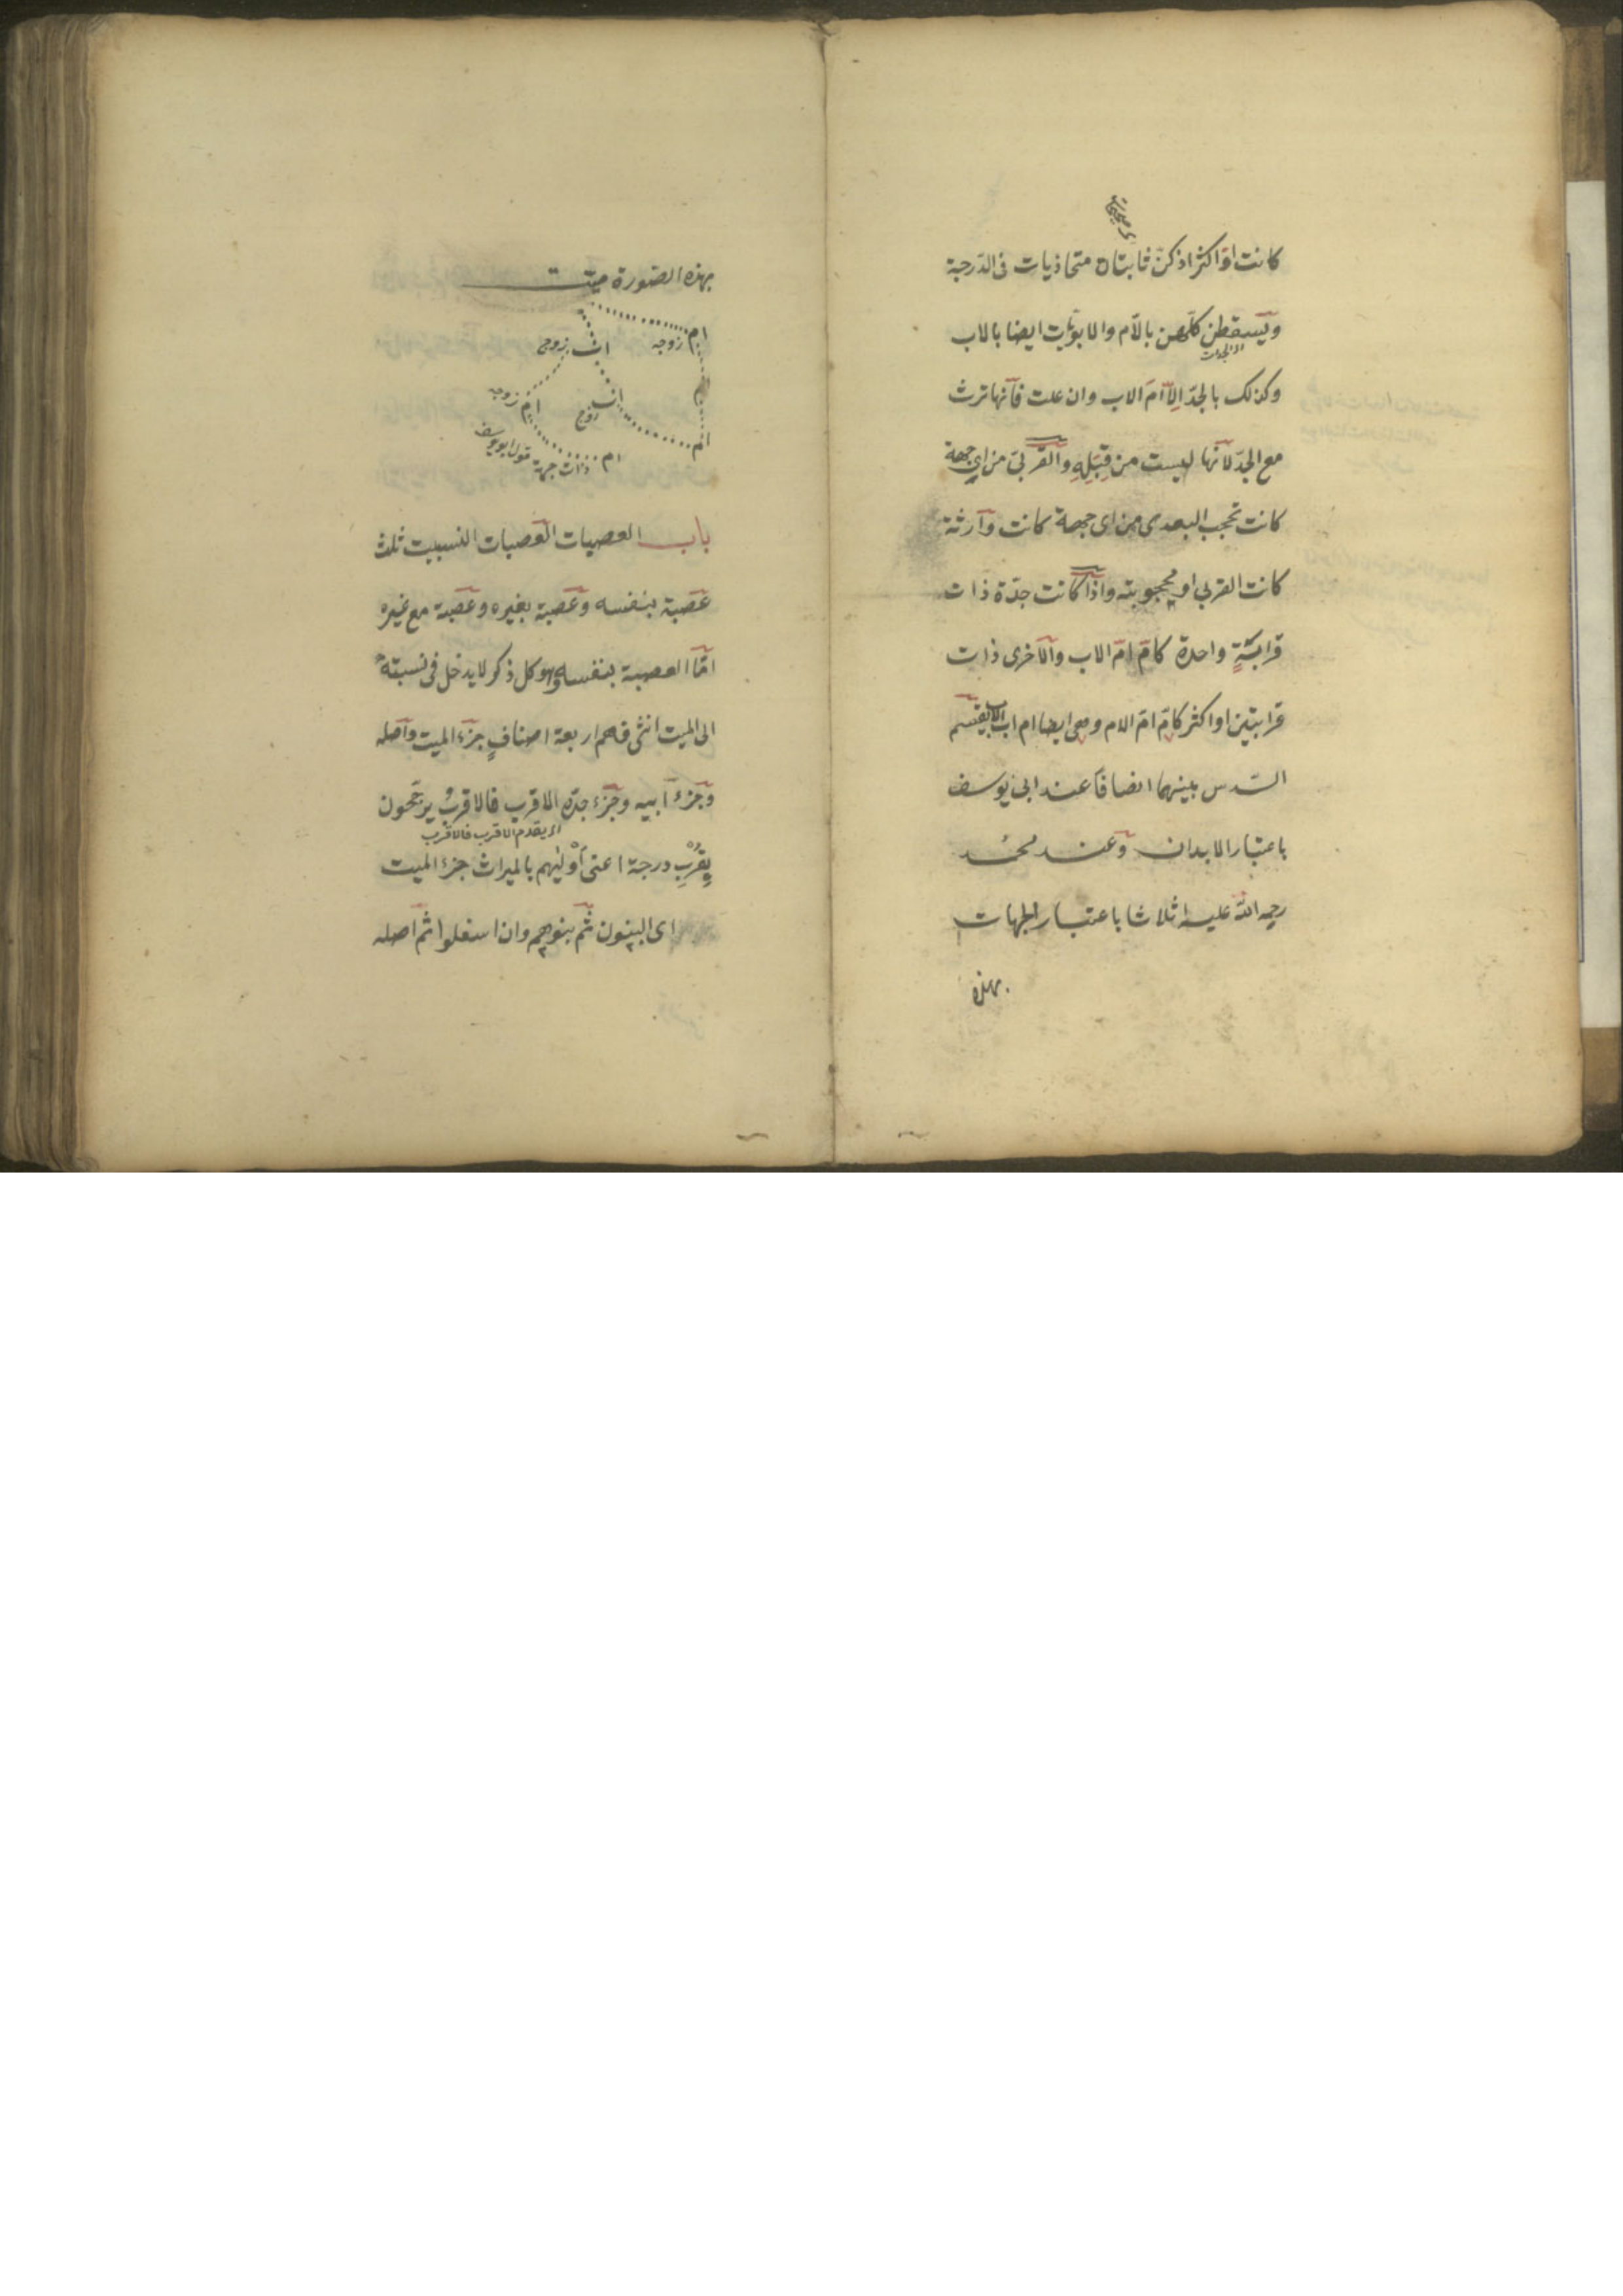 كانت او اكثر اذ كن ثابتات متحاذيات فى الدرجة
ويسقطن كلهن بالام والابويات ايضا بالاب
اى الجدات
وكذلك بالجد الا ام الاب وان علت فانها ترث
مع الجد لانها ليست من قبله والقربى من اى جهة
كانت تحجب البعدى من اى جهة كانت وارثة
كانت القربى او محجوبته واذا كانت جدة ذات
قرابة واحدة كام ام الاب والاخرى ذات
قرابتين او اكثر كام ام الام وهى ايضا ام اب الاب يقسم
السدس بينهما انصافا عند ابى يوسف
باعتبار الابدان وعند محمد
رحمه الله عليه اثلاثا باعتبار الجهات
بهذه
بهذه الصورة ميت
ام زوجه
اب زوج
اب زوج
ام زوجه
ام
ام ذات جهة قول ابو يوسف
باب العصبات العصبات النسبيت ثلث
عصبة بنفسه وعصبة بغيره وعصبة مع غيره
اما العصبة بنفسه وهو كل ذكر لا يدخل فى نسبته
الى الميت انثى فهم اربعة اصناف جزء الميت واصله
وجزء ابيه وجزء جده الاقرب فالاقرب يرجحون
اى يقدم الاقرب فالاقرب
بقرب درجة اعنى اوليهم بالميراث جزء الميت
اى البنون ثم بنوهم وان اسفلوا ثم اصله